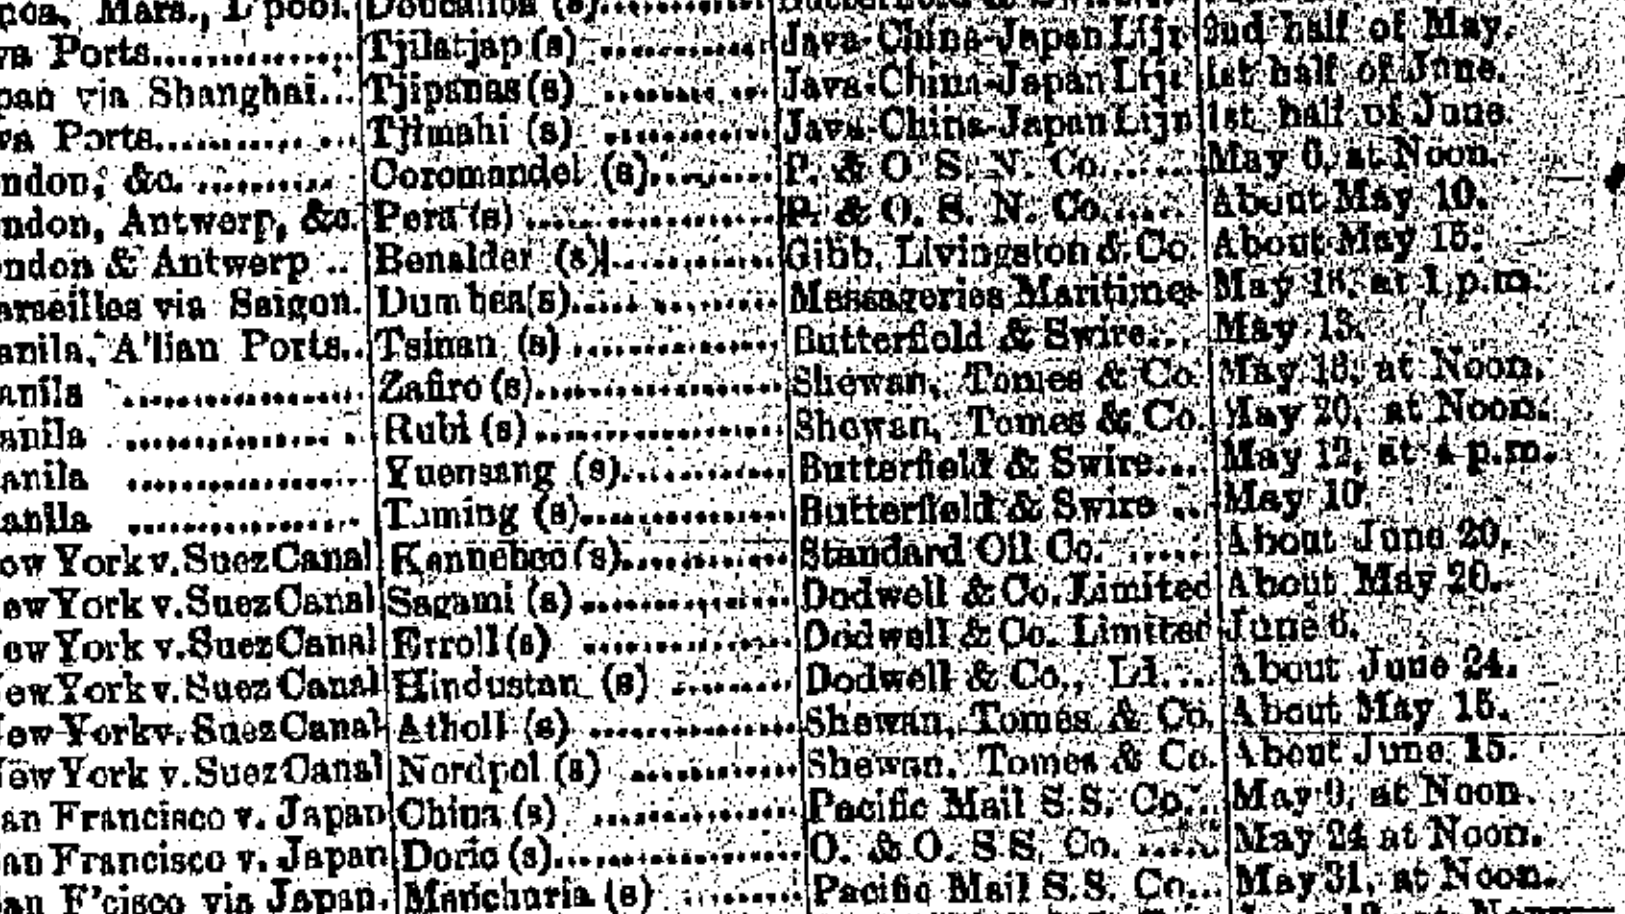 Mars., L'pool. Deucalion (s)
Ports Tjilatjap (s) Java-China-Japan Lijn 2nd half of May.
via Shanghai... Tjipanas (s) Java-China-Japan Lijn 1st half of June.
Ports Tjimahi (s) Java-China-Japan Lijn 1st half of June.
ndon, &c. Coromandel (s) P. & O. S. N. Co. May 6, at Noon.
ndon, Antwerp, &c. Pera (s) P. & O. S. N. Co. About May 10.
ndon & Antwerp .. Benalder (s) Gibb, Livingston & Co. About May 15.
arseilles via Saigon. Dumbea (s) Messageries Maritimes May at 1 p.m.
anila, A'lian Ports.. Tsinan (s) Butterfield & Swire... May 13.
anila Zafiro (s) Shewan, Tomes & Co. May 13, at Noon.
anila Rubi (s) Shewan, Tomes & Co. May 20, at Noon.
anila Yuensang (s) Butterfield & Swire... May 12, at 4 p.m.
anila Taming (s) Butterfield & Swire ... May 10
ew York v. Suez Canal Kennebec (s) Standard Oil Co. ..... About June 20.
ew York v. Suez Canal Sagami (s) Dodwell & Co. Limited About May 20.
ew York v. Suez Canal Erroll (s) Dodwell & Co. Limited June 6.
New York v. Suez Canal Hindustan (s) Dodwell & Co., Ld. ... About June 24.
New York v. Suez Canal Atholl (s) Shewan, Tomes & Co. About May 15.
New York v. Suez Canal Nordpol (s) Shewan, Tomes & Co. About June 15.
an Francisco v. Japan China (s) Pacific Mail S.S. Co... May 9, at Noon.
an Francisco v. Japan Doric (s) O. & O. S.S. Co. .... May 24 at Noon.
an F'cisco via Japan. Manchuria (s) Pacific Mail S.S. Co... May 31, at Noon.